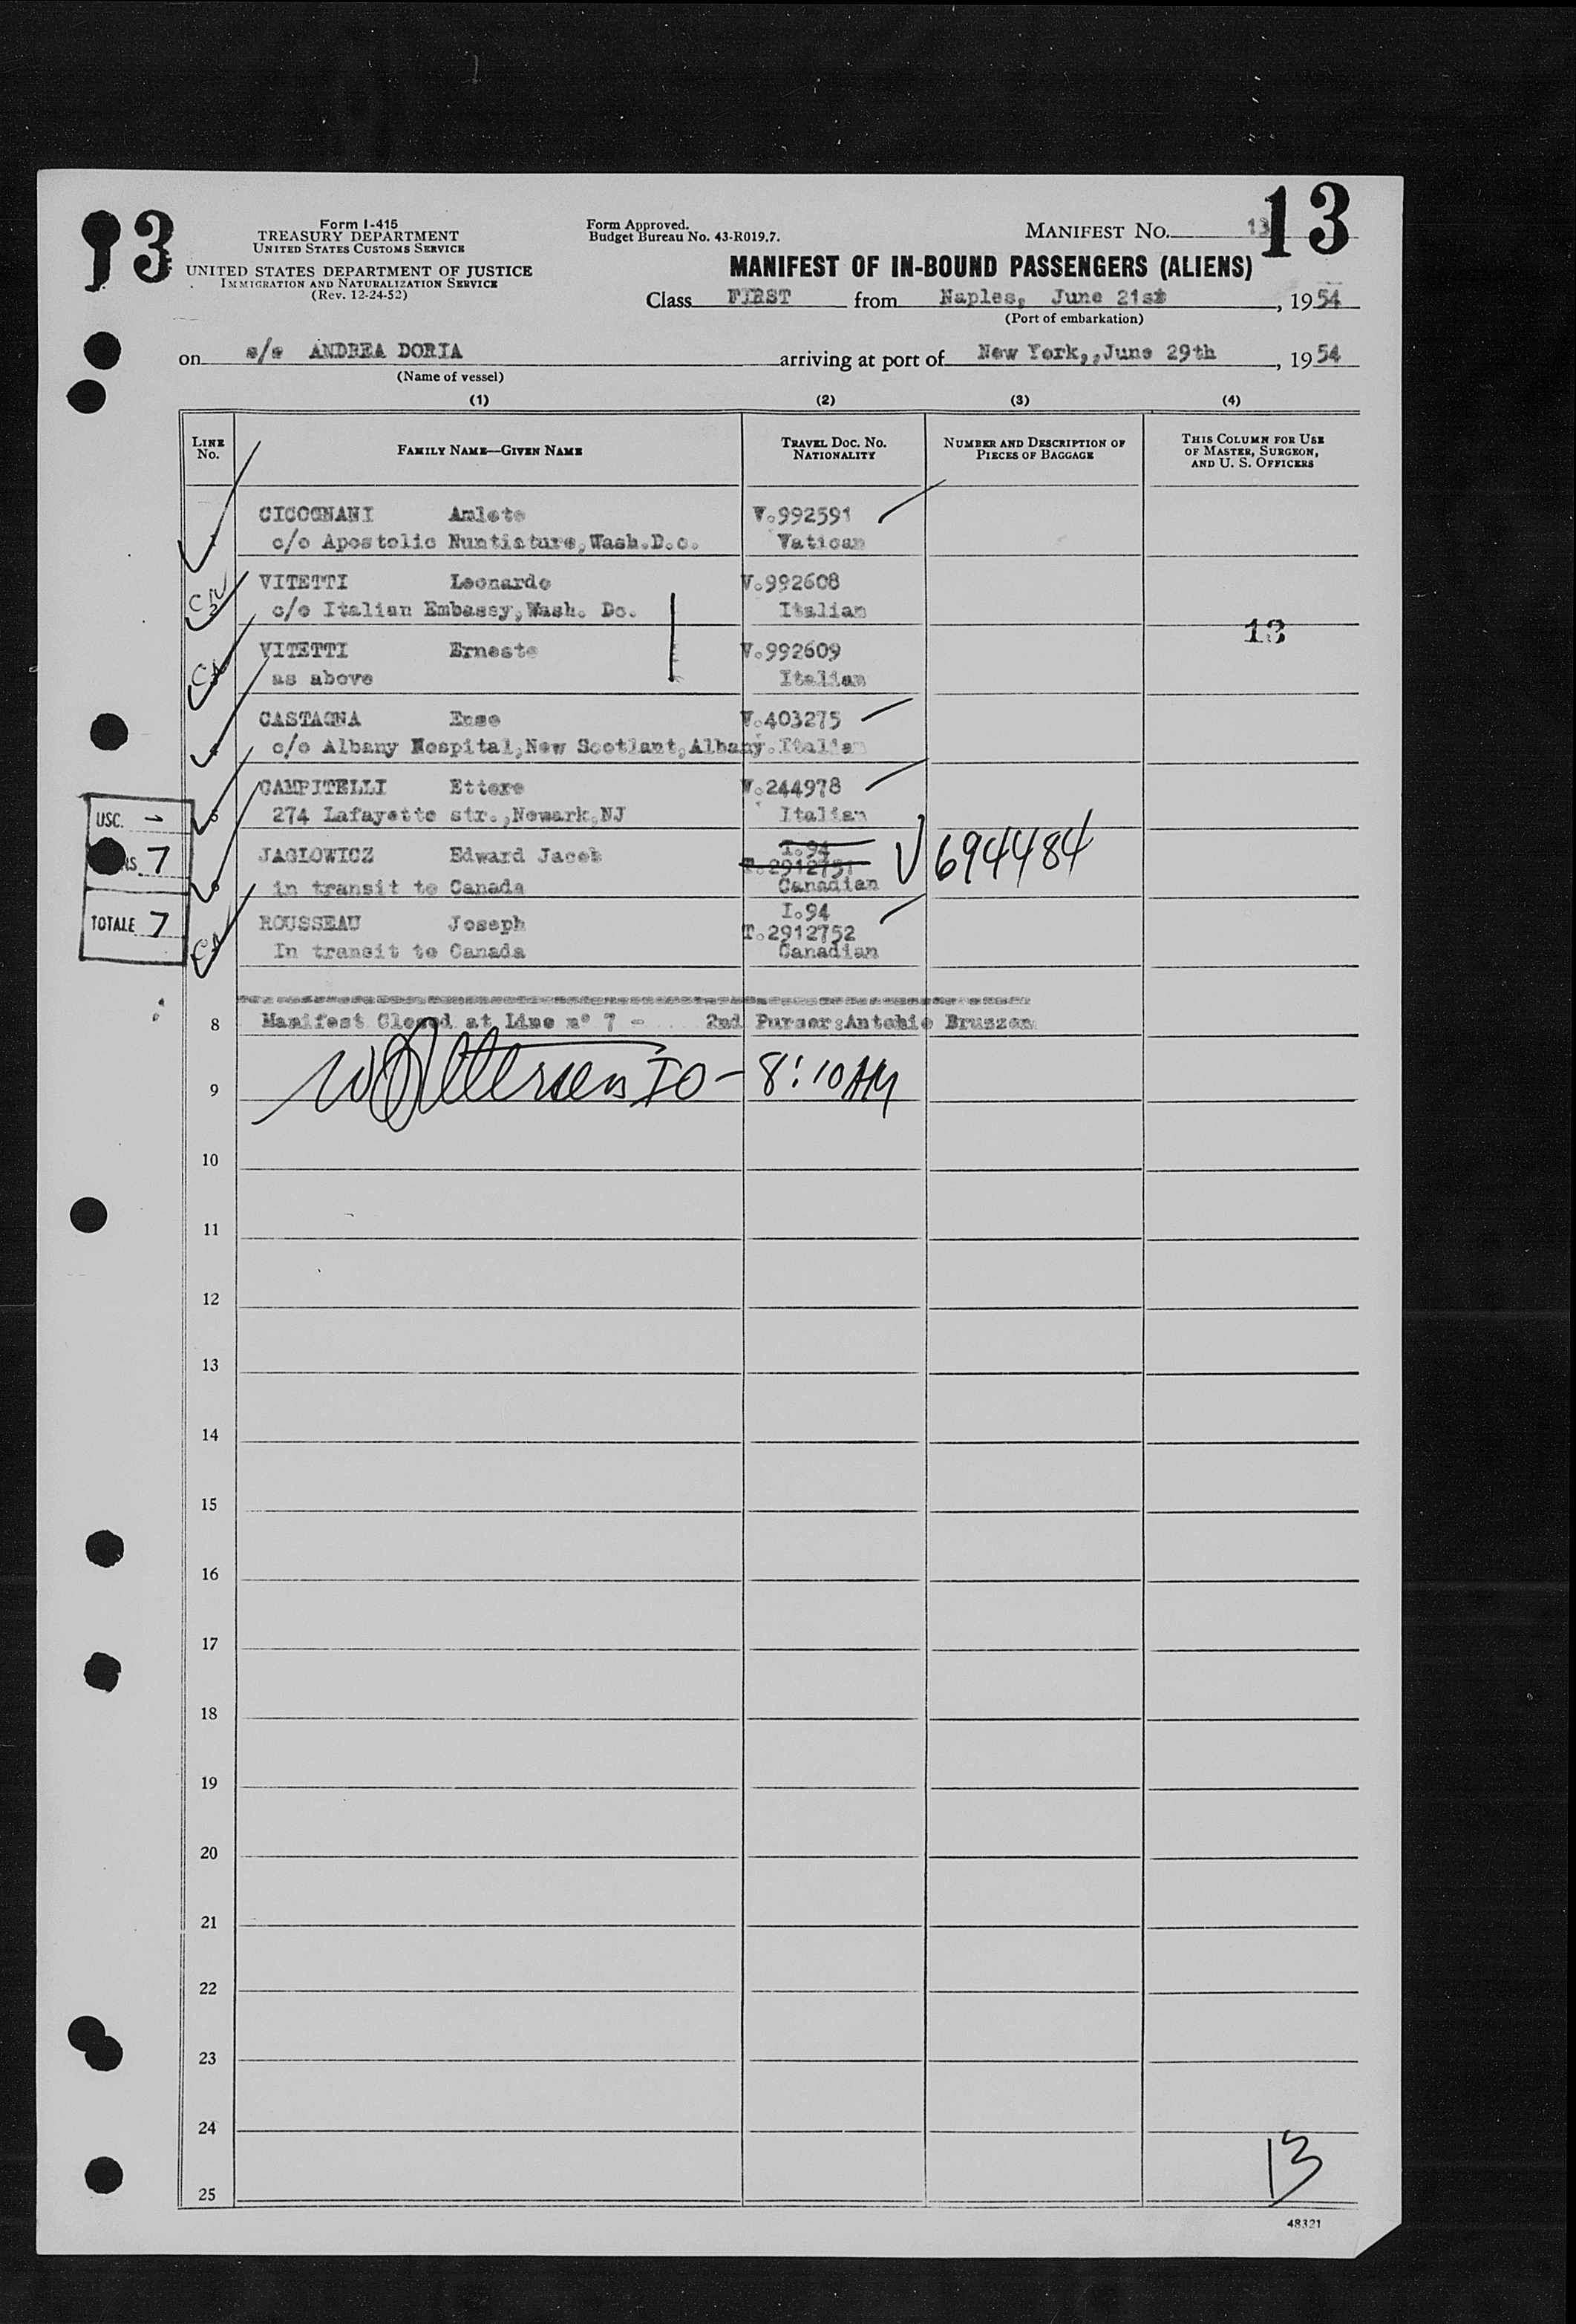 13
Form I-415
TREASURY DEPARTMENT
UNITED STATES CUSTOMS SERVICE
UNITED STATES DEPARTMENT OF JUSTICE
IMMIGRATION AND NATURALIZATION SERVICE
(Rev. 12-24-52)
Form Approved.
Budget Bureau No. 43-R019.7.
MANIFEST NO. 13
13
MANIFEST OF IN-BOUND PASSENGERS (ALIENS)
Class FIRST from Naples, June 21st, 1954
(Port of embarkation)
on s/s ANDREA DORIA arriving at port of New York,,June 29th, 1954
(Name of vessel)
(1) (2) (3) (4)
LINE No. FAMILY NAME—GIVEN NAME TRAVEL DOC. NO. NATIONALITY NUMBER AND DESCRIPTION OF PIECES OF BAGGAGE THIS COLUMN FOR USE OF MASTER, SURGEON, AND U. S. OFFICERS
CICOGNANI Amleto V.992591
c/o Apostolic Nuntiature,Wash.D.c. Vatican
VITETTI Leonardo V.992608
c/o Italian Embassy,Wash. Dc. Italian
13
VITETTI Ernesto V.992609
as above Italian
CASTAGNA Enso V.403275
c/o Albany Hospital,New Scotlant,Albany.Italian
CAMPITELLI Ettore V.244978
274 Lafayette str.,Newark,NJ Italian
USC. —
7
TOTALE 7
JAGLOWICZ Edward Jacob I.94
T.2912751 694484
in transit to Canada Canadian
ROUSSEAU Joseph I.94
T.2912752
In transit to Canada Canadian
8 Manifest Closed at Line n° 7 - 2nd Purser:Antonio Bruzzon
9 IO - 8:10 AM
10
11
12
13
14
15
16
17
18
19
20
21
22
23
24
25
13
48321